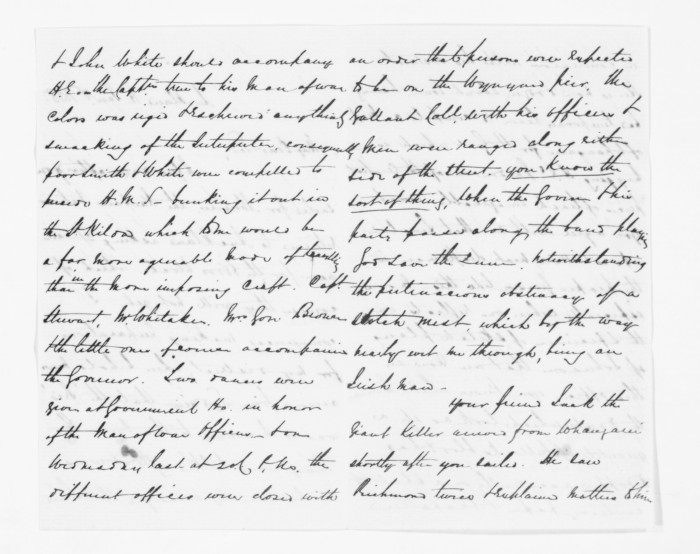 & John White should accompany
H.E. - the Captn true to his Man of war
Colors was rigid & Eschewed anything
smacking of the Interpreter, consequently
poor Smith & White were compelled to
precede H.M.S - bunking it out in
the St Kilda which to me would be
a far more agreeable mode of
than in the more imposing Craft. Capt
Stewart, Mr Whitaker, Mrs Gore Browne
& the little ones of course accompanied
the Governor. Two dances were
given at Government Ho. in honor
of the Man of War Officers - & on
Wednesday last at 2 o'c P.M. the
different offices were closed with
an order that persons were expected
to be on the Wynyard pier. The
Gallant Coll. with his officers &
Men were ranged along either
side of the street - you know the
sort of thing, When the Govenr & his
party passed along, the band playing
God Save the Queen. notwithstanding
the pertinacious obstinacy of a
Scotch mist, which by the way
nearly wet me through, being an
Irish man -
Your friend Jack the
Giant Killer arrived from Whangarei
shortly after you sailed. He saw
Richmond twice & explained matters to him